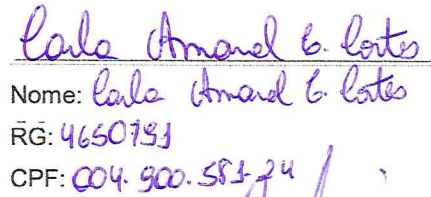 Carla Amaral C. Cortes
Nome: Carla Amaral C. Cortes
RG: 4650791
CPF: 004.900.581-24